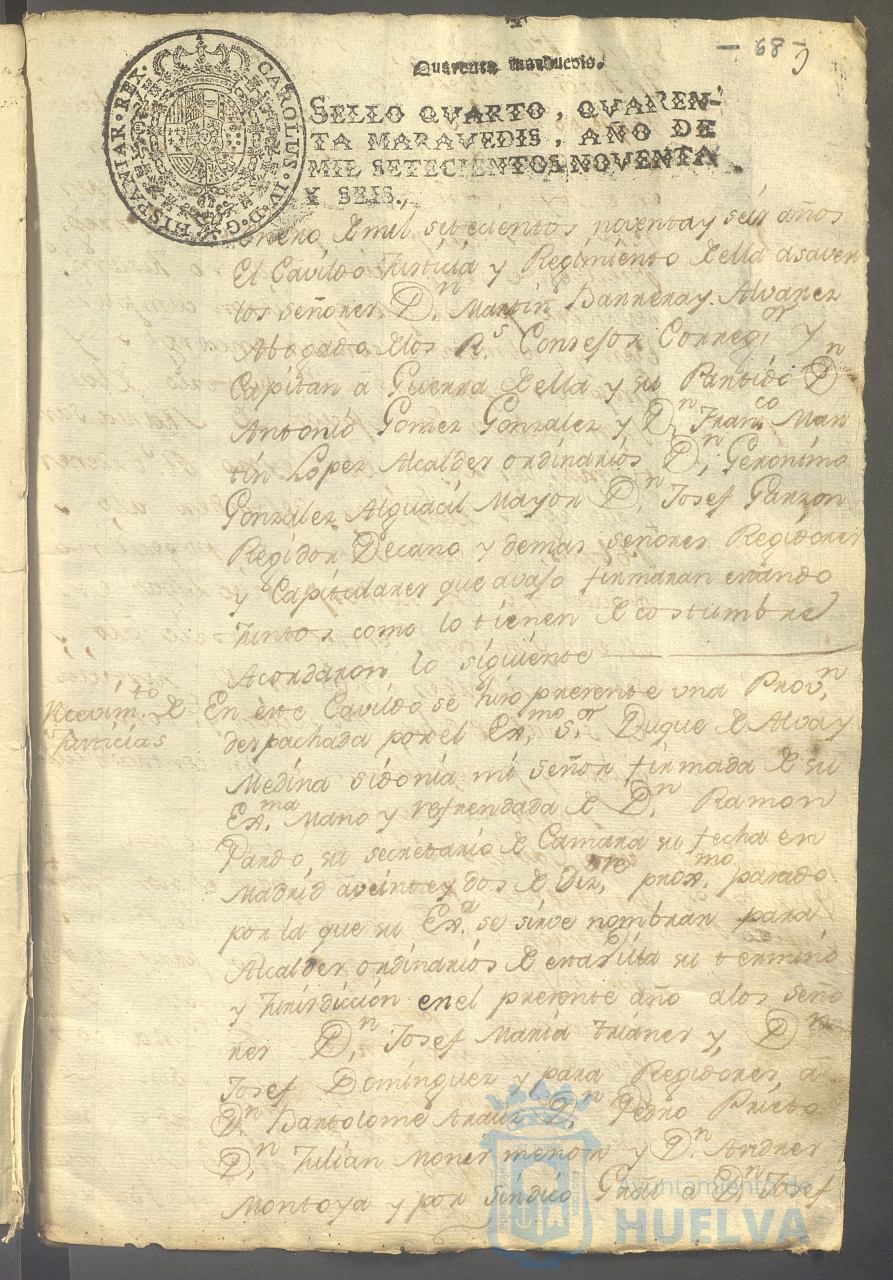 - 68 -
Quarenta maravedis.
HISPANIAR·REX· CAROLUS·IV·D·G·
SELLO QVARTO, QVAREN-
TA MARAVEDIS, AÑO DE
MIL SETECIENTOS NOVENTA
Y SEIS.,
enero de mil setecientos noventa y seis años
El Cavildo Justicia y Regimiento de ella asaver
los señores Dn. Martin Barrera y Alvarez
Abogado de los Rs. Consejos Corregor. y
Capitan a Guerra de ella y su Partido Dn
Antonio Gomez Gonzalez y Dn. Franco. Mar
tin Lopez Alcaldes ordinarios Dn. Geronimo
Gonzalez Alguacil Mayor Dn. Josef Garzon
Regidor Decano y demas señores Regidores
y Capitulares que avajo firmaran estando
Juntos como lo tienen de costumbre
Acordaron lo siguiente
Recevimto. de
Justicias
En este Cavildo se hizo presente una Provn.
despachada por el Exmo. Sor. Duque de Alva y
Medina sidonia mi señor firmada de su
Exma. Mano y refrendada de Dn. Ramon
Pardo su secretario de Camara su fecha en
Madrid a veinte y dos de Dizre. proxmo. pasado
por la que su Exa. se sirve nombrar para
Alcaldes ordinarios de esta Villa su termino
y Jurisdiccion en el presente año a los seño
res Dn. Josef Maria Trianes y, Dn
Josef Dominguez y para Regidores a
Dn. Bartolome Arauz Dn. Pedro Prieto
Dn. Julian Mones menor y Dn. Andres
Montoya y por Sindico Gral a Dn. Josef
Ayuntamiento de
HUELVA